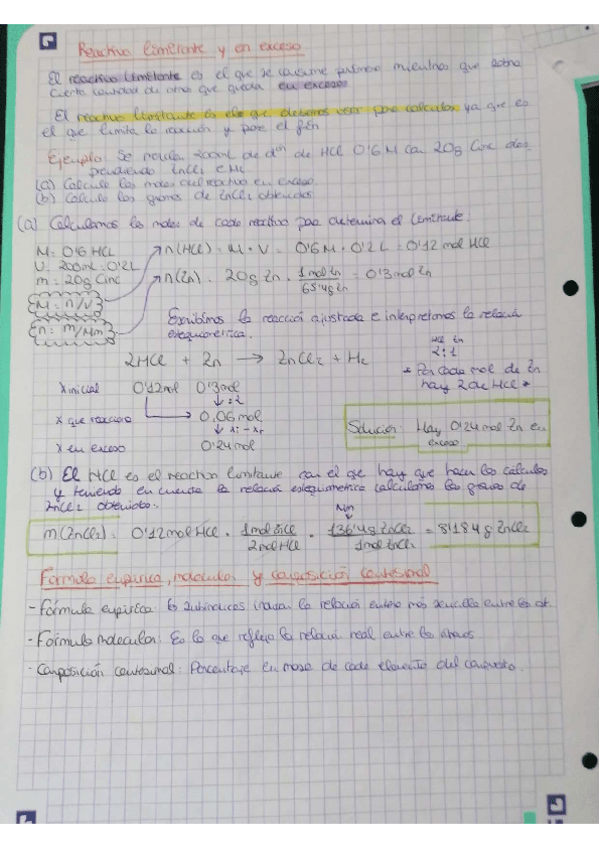 Reactivo limitante y en exceso
El reactivo limitante es el que se consume primero mientras que sobra
cierta cantidad de otro que queda en exceso
El reactivo limitante es el que debemos usar para calcular ya que es
el que limita la reacción y pone el fin
Ejemplo: Se mezclan 200mL de dºn de HCl 0'6M con 20g Cinc des
prendiendo ZnCl2 e H2
(a) Calcule los moles del reactivo en exceso.
(b) Calcule los gramos de ZnCl2 obtenidos
(a) Calculamos los moles de cada reactivo para determinar el limitante.
M = 0'6 HCl
V = 200mL = 0'2L
m = 20g Cinc
n(HCl) = M · V = 0'6M · 0'2L = 0'12 mol HCl
n(Zn) = 20g Zn · 1mol Zn / 65'4g Zn = 0'3mol Zn
M = n/V
n = m/Mm
Escribimos la reacción ajustada e interpretamos la relación
estequiométrica.
HCl Zn
2 : 1
2HCl + Zn → ZnCl2 + H2
* Por cada mol de Zn
hay 2 de HCl *
x inicial 0'12mol 0'3mol
↓ :2
x que reacciona 0,06mol
↓ xi - xr
x en exceso 0'24mol
Solución: Hay 0'24 mol Zn en
exceso
(b) El HCl es el reactivo limitante con el que hay que hacer los cálculos
y teniendo en cuenta la relación estequiométrica calculamos los gramos de
ZnCl2 obtenidos.
Mm
m(ZnCl2) = 0'12mol HCl · 1mol ZnCl2 / 2mol HCl · 136'4g ZnCl2 / 1mol ZnCl2 = 8'184g ZnCl2
Fórmula empírica, molecular y composición centesimal
- Fórmula empírica: los subíndices indican la relación entera más sencilla entre los át.
- Fórmula molecular: Es la que refleja la relación real entre los átomos
- Composición centesimal: Porcentaje en masa de cada elemento del compuesto.